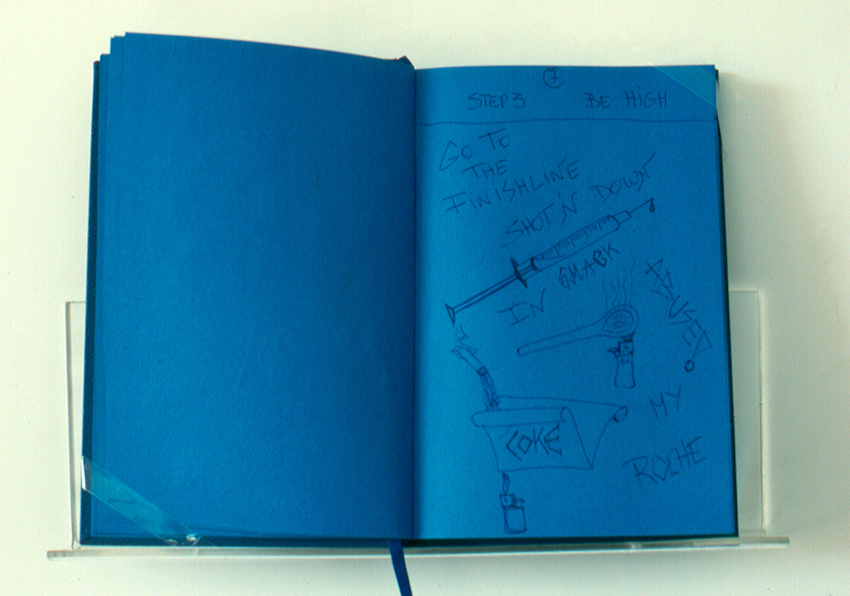 7
STEP 3 BE HIGH
GO TO
THE
FINISHLINE
SHOT'N DOWN
IN SMACK
ABUSED
MY
ROCHE
COKE